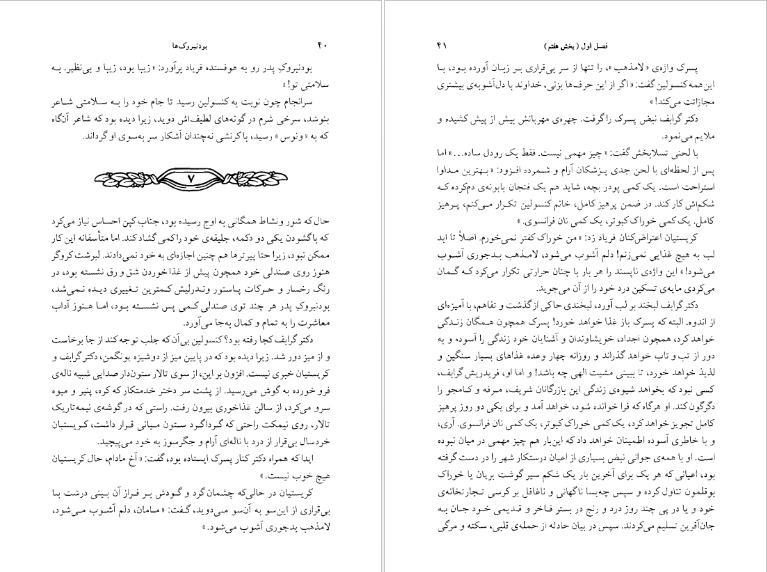 ۴۰ بودنبروک‌ها
بودنبروکِ پدر رو به هوفستده فریاد برآورد: «زیبا بود، زیبا و بی‌نظیر. به
سلامتی تو!»
سرانجام چون نوبت به کنسولین رسید تا جام خود را به سلامتی شاعر
بنوشد، سرخی شرم در گونه‌های لطیف‌اش دوید، زیرا دیده بود که شاعر آنگاه
که به «ونوس» رسید، با کرنشی نه‌چندان آشکار سر به‌سوی او گرداند.
۷
حال که شور و نشاط همگانی به اوج رسیده بود، جناب کپن احساس نیاز می‌کرد
که با گشودن یکی دو دکمه، جلیقه‌ی خود را کمی گشاد کند. اما متأسفانه این کار
ممکن نبود، زیرا حتا پیرترها هم چنین اجازه‌ای به خود نمی‌دادند. لبرشت کروگر
هنوز روی صندلی خود همچون پیش از غذا خوردن شق و رق نشسته بود، در
رنگ رخسار و حرکات پاستور وندرلیش کمترین تغییری دیده نمی‌شد،
بودنبروکِ پدر هر چند توی صندلی کمی پس نشسته بود، اما هنوز آداب
معاشرت را به تمام و کمال به‌جا می‌آورد.
دکتر گرابف کجا رفته بود؟ کنسولین بی‌آن‌که جلب توجه کند از جا برخاست
و از میز دور شد. زیرا دیده بود که در پایین میز از دوشیزه یونگمن، دکتر گرابف و
کریستیان خبری نیست. افزون بر این، از سوی تالار ستون‌دار صدایی شبیه ناله‌ی
فرو خورده به گوش می‌رسید. از پشت سر دختر خدمتکار که کره، پنیر و میوه
سرو می‌کرد، از سالن غذاخوری بیرون رفت. راستی که در گوشه‌ی نیمه‌تاریک
تالار، روی نیمکت راحتی که گرداگرد ستون میانی قرار داشت، کریستیان
خردسال بی‌قرار از درد با ناله‌ای آرام و جگرسوز به خود می‌پیچید.
ایدا که همراه دکتر کنار پسرک ایستاده بود، گفت: «آخ مادام، حال کریستیان
هیچ خوب نیست.»
کریستیان در حالی‌که چشمان گرد و گودش بر فراز آن بینی درشت با
بی‌قراری از این‌سو به آن‌سو می‌دوید، گفت: «مامان، دلم آشوب می‌شود،
لامذهب بدجوری آشوب می‌شود.»
فصل اول (بخش هفتم) ۴۱
پسرک واژه‌ی «لامذهب»، را تنها از سر بی‌قراری بر زبان آورده بود، با
این همه کنسولین گفت: «اگر از این حرف‌ها بزنی، خداوند با دل‌آشوبه‌ی بیشتری
مجازاتت می‌کند!»
دکتر گرابف نبض پسرک را گرفت. چهره‌ی مهربانش بیش از پیش کشیده و
ملایم می‌نمود.
با لحنی تسلابخش گفت: «چیز مهمی نیست. فقط یک رودل ساده...» اما
پس از لحظه‌ای با لحن جدی پزشکان آرام و شمرده افزود: «بهترین مداوا
استراحت است. یک کمی پودر بچه، شاید هم یک فنجان بابونه‌ی دم‌کرده که
شکم‌اش کار کند. در ضمن پرهیز کامل، خانم کنسولین تکرار می‌کنم، پرهیز
کامل. یک کمی خوراک کبوتر، یک کمی نان فرانسوی.»
کریستیان اعتراض‌کنان فریاد زد: «من خوراک کفتر نمی‌خورم. اصلاً تا ابد
لب به هیچ غذایی نمی‌زنم! دلم آشوب می‌شود، لامذهب بدجوری آشوب
می‌شود!» این واژه‌ی ناپسند را هر بار با چنان حرارتی تکرار می‌کرد که گمان
می‌کردی مایه‌ی تسکین درد خود را از آن می‌جوید.
دکتر گرابف لبخند بر لب آورد، لبخندی حاکی از گذشت و تفاهم، با آمیزه‌ای
از اندوه. البته که پسرک باز غذا خواهد خورد! پسرک همچون همگان زندگی
خواهد کرد، همچون اجداد، خویشاوندان و آشنایان خود زندگی را آسوده و به
دور از تب و تاب خواهد گذراند و روزانه چهار وعده غذاهای بسیار سنگین و
لذیذ خواهد خورد، تا ببینی مشیت الهی چه باشد! و اما او، فریدریش گرابف،
کسی نبود که بخواهد شیوه‌ی زندگی این بازرگانان شریف، مرفه و کامجو را
دگرگون کند. او هرگاه که فرا خوانده شود، خواهد آمد و برای یکی دو روز پرهیز
کامل تجویز خواهد کرد، یک کمی خوراک کبوتر، یک کمی نان فرانسوی. آری،
و با خاطری آسوده اطمینان خواهد داد که این‌بار هم چیز مهمی در میان نبوده
است. او با همه‌ی جوانی نبض بسیاری از اعیان درستکار شهر را در دست گرفته
بود، اعیانی که هر یک برای آخرین بار یک شکم سیر گوشت بریان یا خوراک
بوقلمون تناول کرده و سپس چه‌بسا ناگهانی و ناغافل بر کرسی تجارتخانه‌ی
خود و یا در پی چند روز درد و رنج در بستر فاخر و قدیمی خود جان به
جان‌آفرین تسلیم می‌کردند. سپس در بیان حادثه از حمله‌ی قلبی، سکته و مرگی